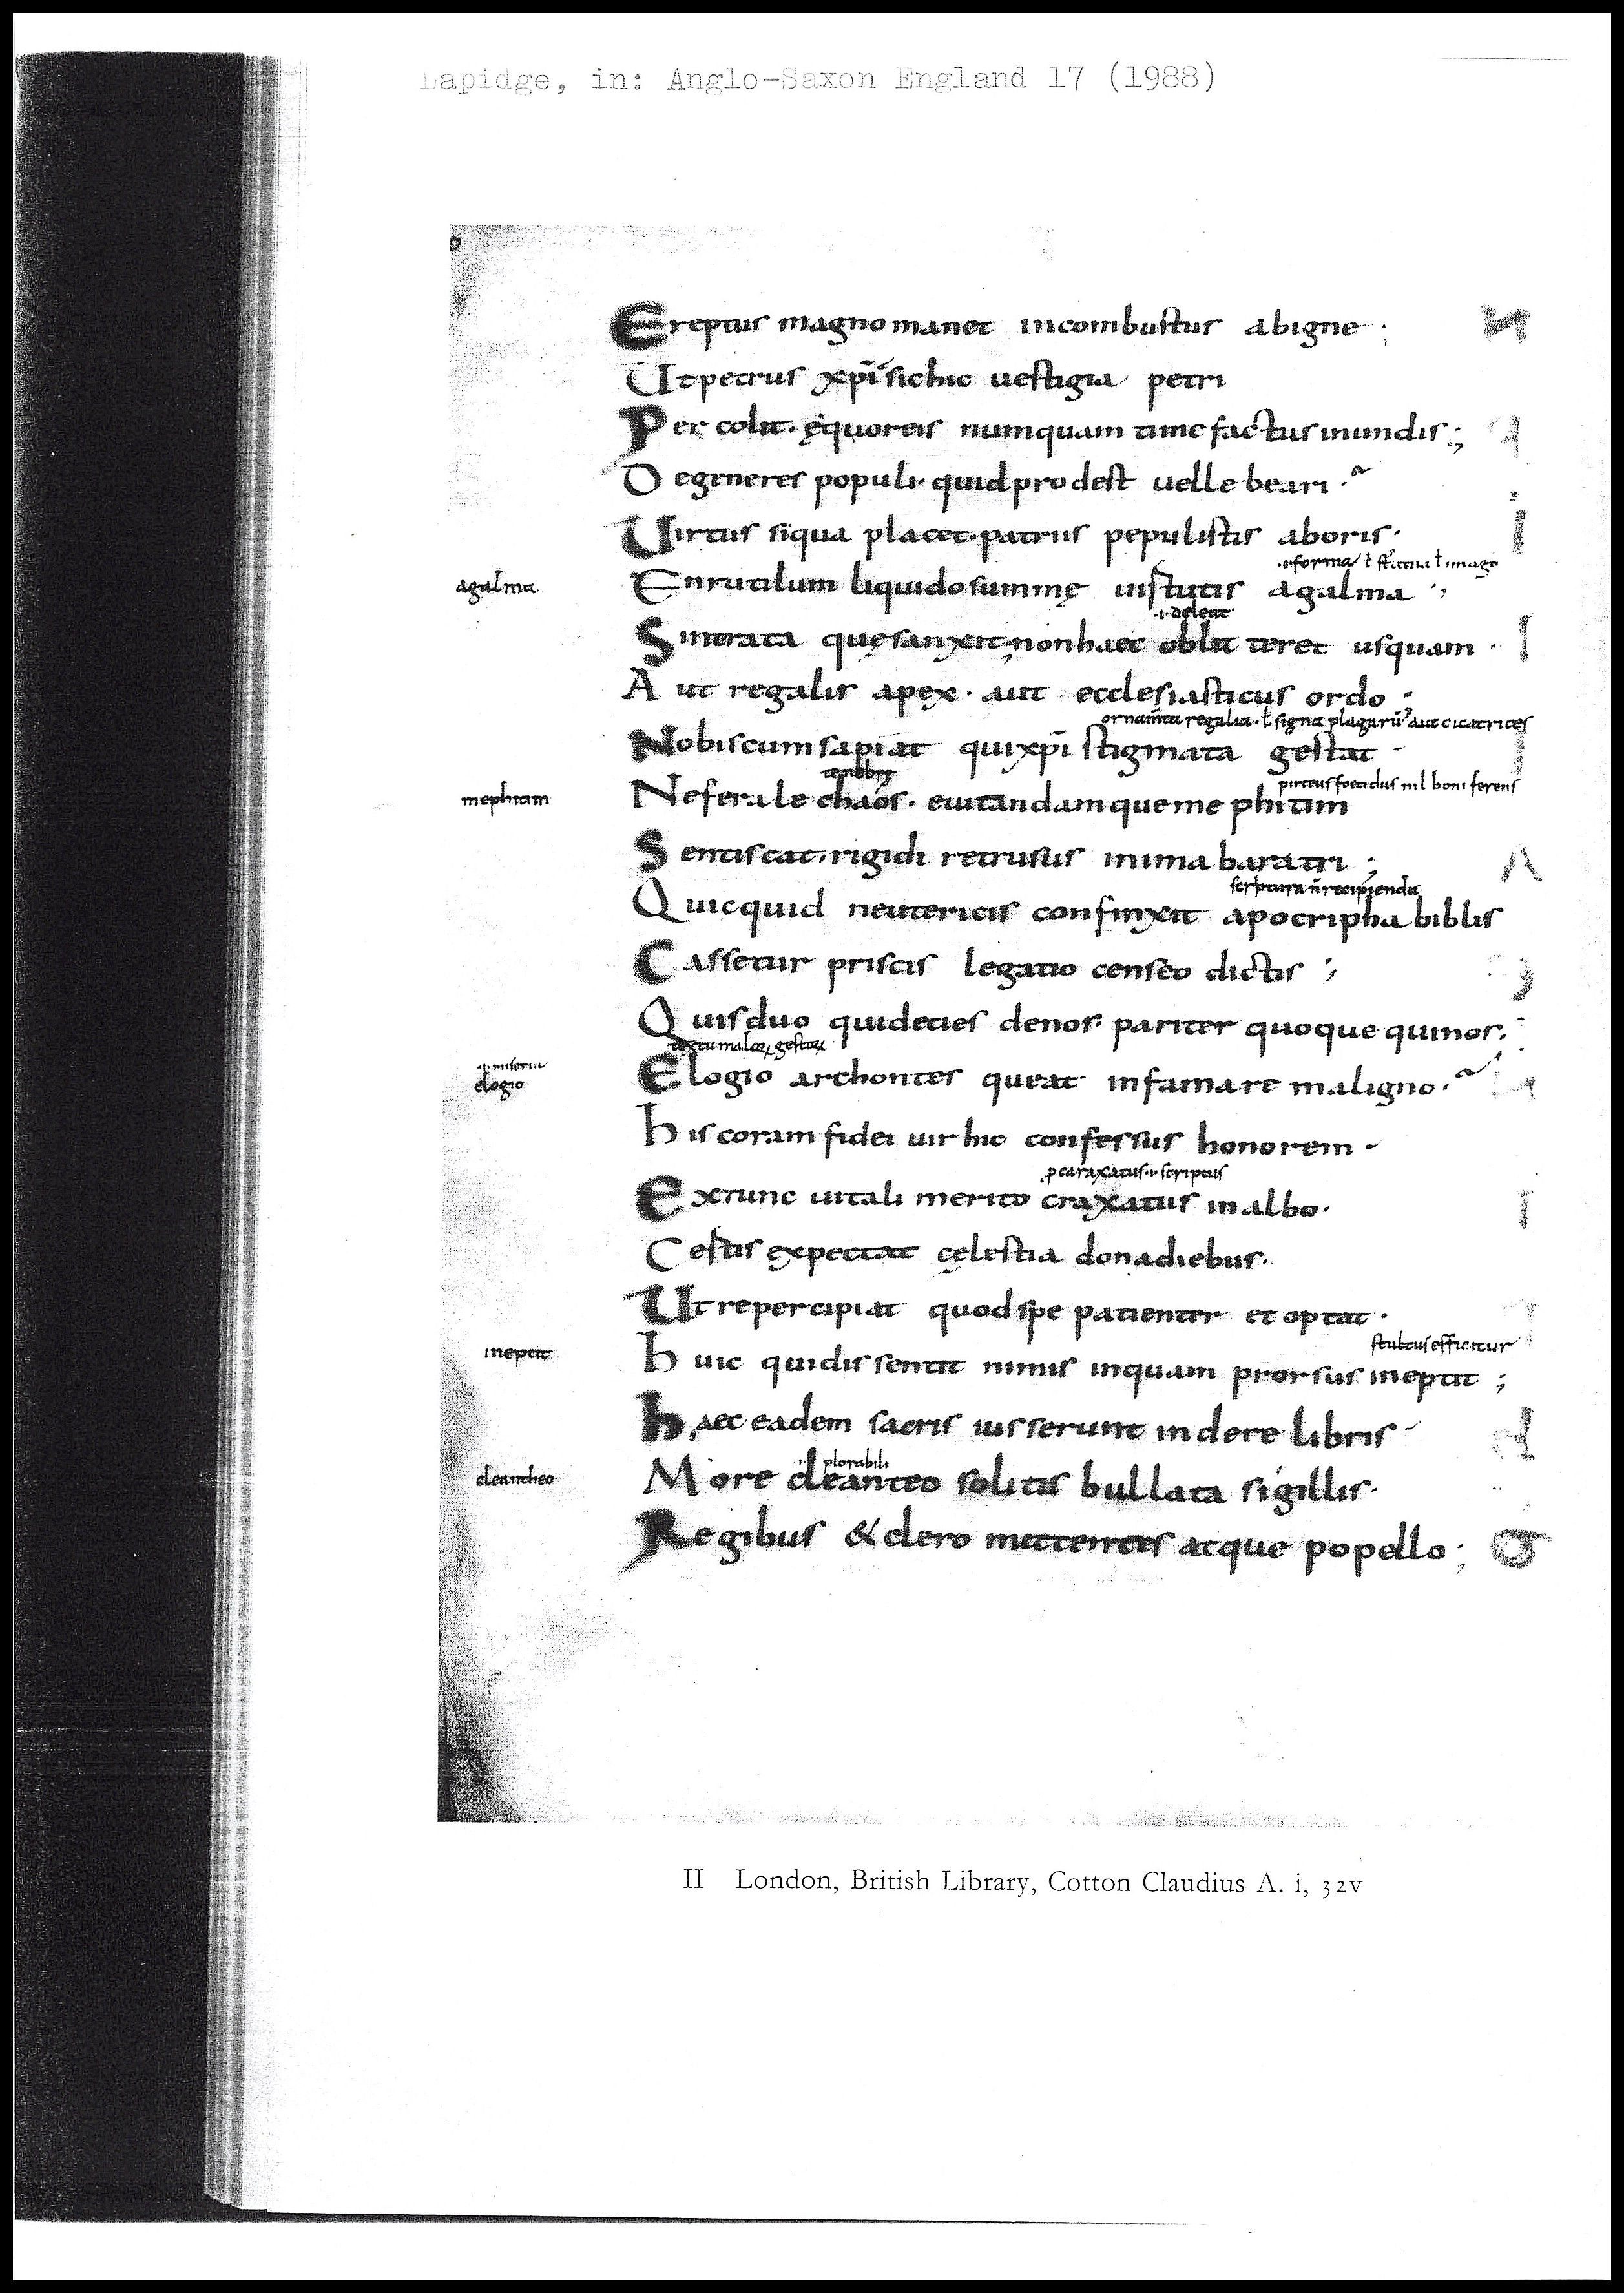 Lapidge, in: Anglo-Saxon England 17 (1988)
Ereptus magno manet incombustus ab igne ;
Ut petrus xp̄i sic hic uestigia petri
Per colit. ęquoreis numquam timefactus in undis ;
Degeneres populi. quid prodest uelle beari .
Uirtus siqua placet. patriis pepulistis ab oris.
.i. forma ł statua ł imago
agalma Enrutilum liquido summę uirtutis agalma ;
.i. delent
Sintrata quę sanxit; nonhaec obliteret usquam .
Aut regalis apex. aut ecclesiasticus ordo .
ornam̄ta regalia . ł signa plagarū aut cicatrices
Nobiscum sapiat qui xp̄i stigmata gestat
tenebrę puteus foetidus nil boni ferens
mephitim Ne ferale chaos. euitandamque mephitim
Sentiscat. rigidi retrusus in ima baratri ;
scriptura n̄ recipienda
Quicquid neutericis confinxit apocripha biblis
Cassetur priscis legatio censeo dictis ;
Quis duo quidecies denos. pariter quoque quinos.
.i. miseria
elogio Elogio archontes queat infamare maligno.
his coram fidei uir hic confessus honorem
ꝑcaraxatus .i. scriptus
Extunc uitali merito craxatus in albo.
Cestis expectat cęlestia dona diebus.
Ut repercipiat quod spe patienter et optat .
stultus efficitur
ineptit huic qui dissentit nimis inquam prorsus ineptit ;
haec eadem sacris iusserunt indere libris
plorabili
cleantheo More cleanteo solitis bullata sigillis.
Regibus & clero mittentes atque popello ;
II London, British Library, Cotton Claudius A. i, 32v